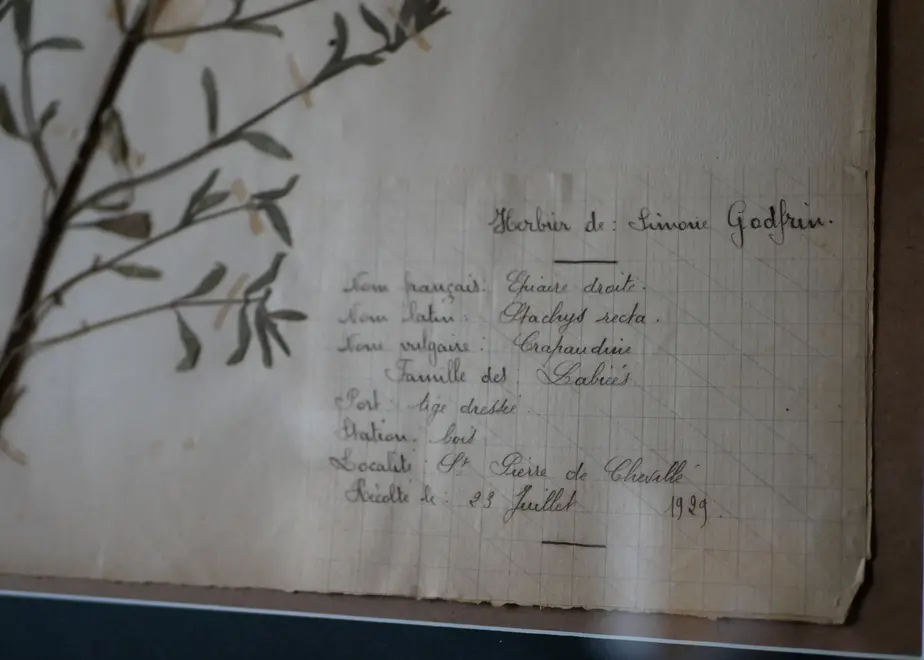 Herbier de : Simone Godfrin.
Nom français : Epiaire droite.
Nom latin : Stachys recta.
Nom vulgaire : Crapaudine
Famille des : Labiées
Port : tige dressée.
Station : bois
Localité : St Pierre de Chevillé
Récolté le : 23 Juillet 1929.